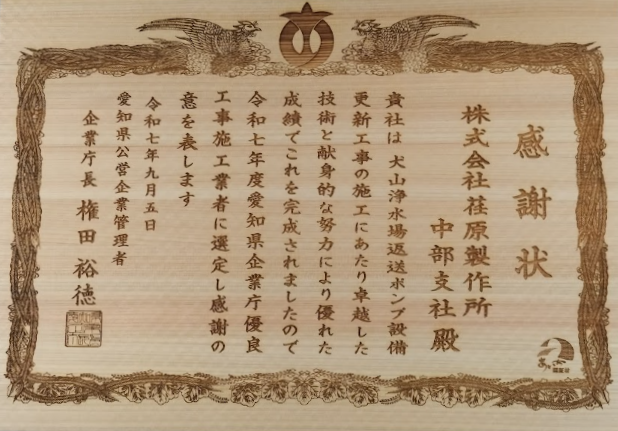 感謝状
株式会社荏原製作所
中部支社 殿
貴社は 犬山浄水場返送ポンプ設備
更新工事の施工にあたり卓越した
技術と献身的な努力により優れた
成績でこれを完成されましたので
令和七年度愛知県企業庁優良
工事施工業者に選定し感謝の
意を表します
令和七年九月五日
愛知県公営企業管理者
企業庁長 権田 裕徳